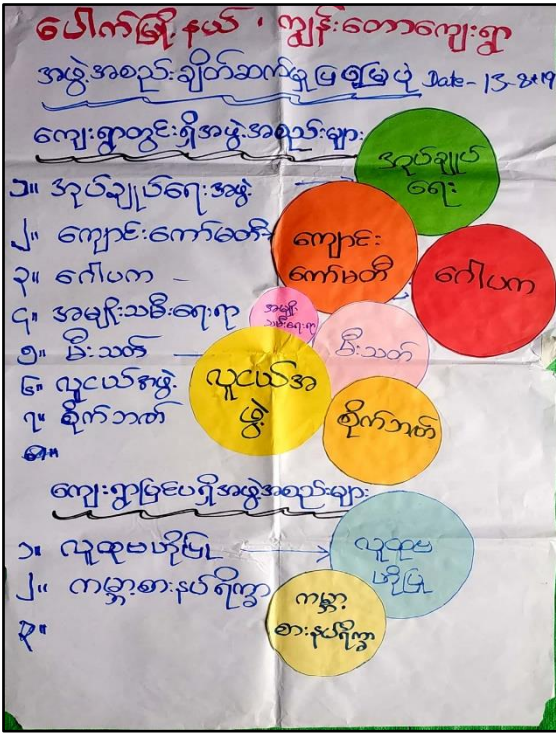 ပေါက်မြို့နယ်၊ ကျွန်းတောကျေးရွာ
အဖွဲ့အစည်းချိတ်ဆက်မှုပြမြေပုံ Date - 13-8-2019
ကျေးရွာတွင်းရှိအဖွဲ့အစည်းများ
၁။ အုပ်ချုပ်ရေးအဖွဲ့
၂။ ကျောင်းကော်မတီ
၃။ ဂေါပက
၄။ အမျိုးသမီးရေးရာ
၅။ မီးသတ်
၆။ လူငယ်အဖွဲ့
၇။ စိုက်ဘဏ်
၈။
အုပ်ချုပ်
ရေး
ကျောင်း
ကော်မတီ
ဂေါပက
အမျိုး
သမီးရေးရာ
မီးသတ်
လူငယ်အ
ဖွဲ့
စိုက်ဘဏ်
ကျေးရွာပြင်ပရှိအဖွဲ့အစည်းများ
၁။ လူထုဗဟိုပြု
၂။ ကမ္ဘာ့စားနပ်ရိက္ခာ
၃။
လူထုဗ
ဟိုပြု
ကမ္ဘာ့
စားနပ်ရိက္ခာ